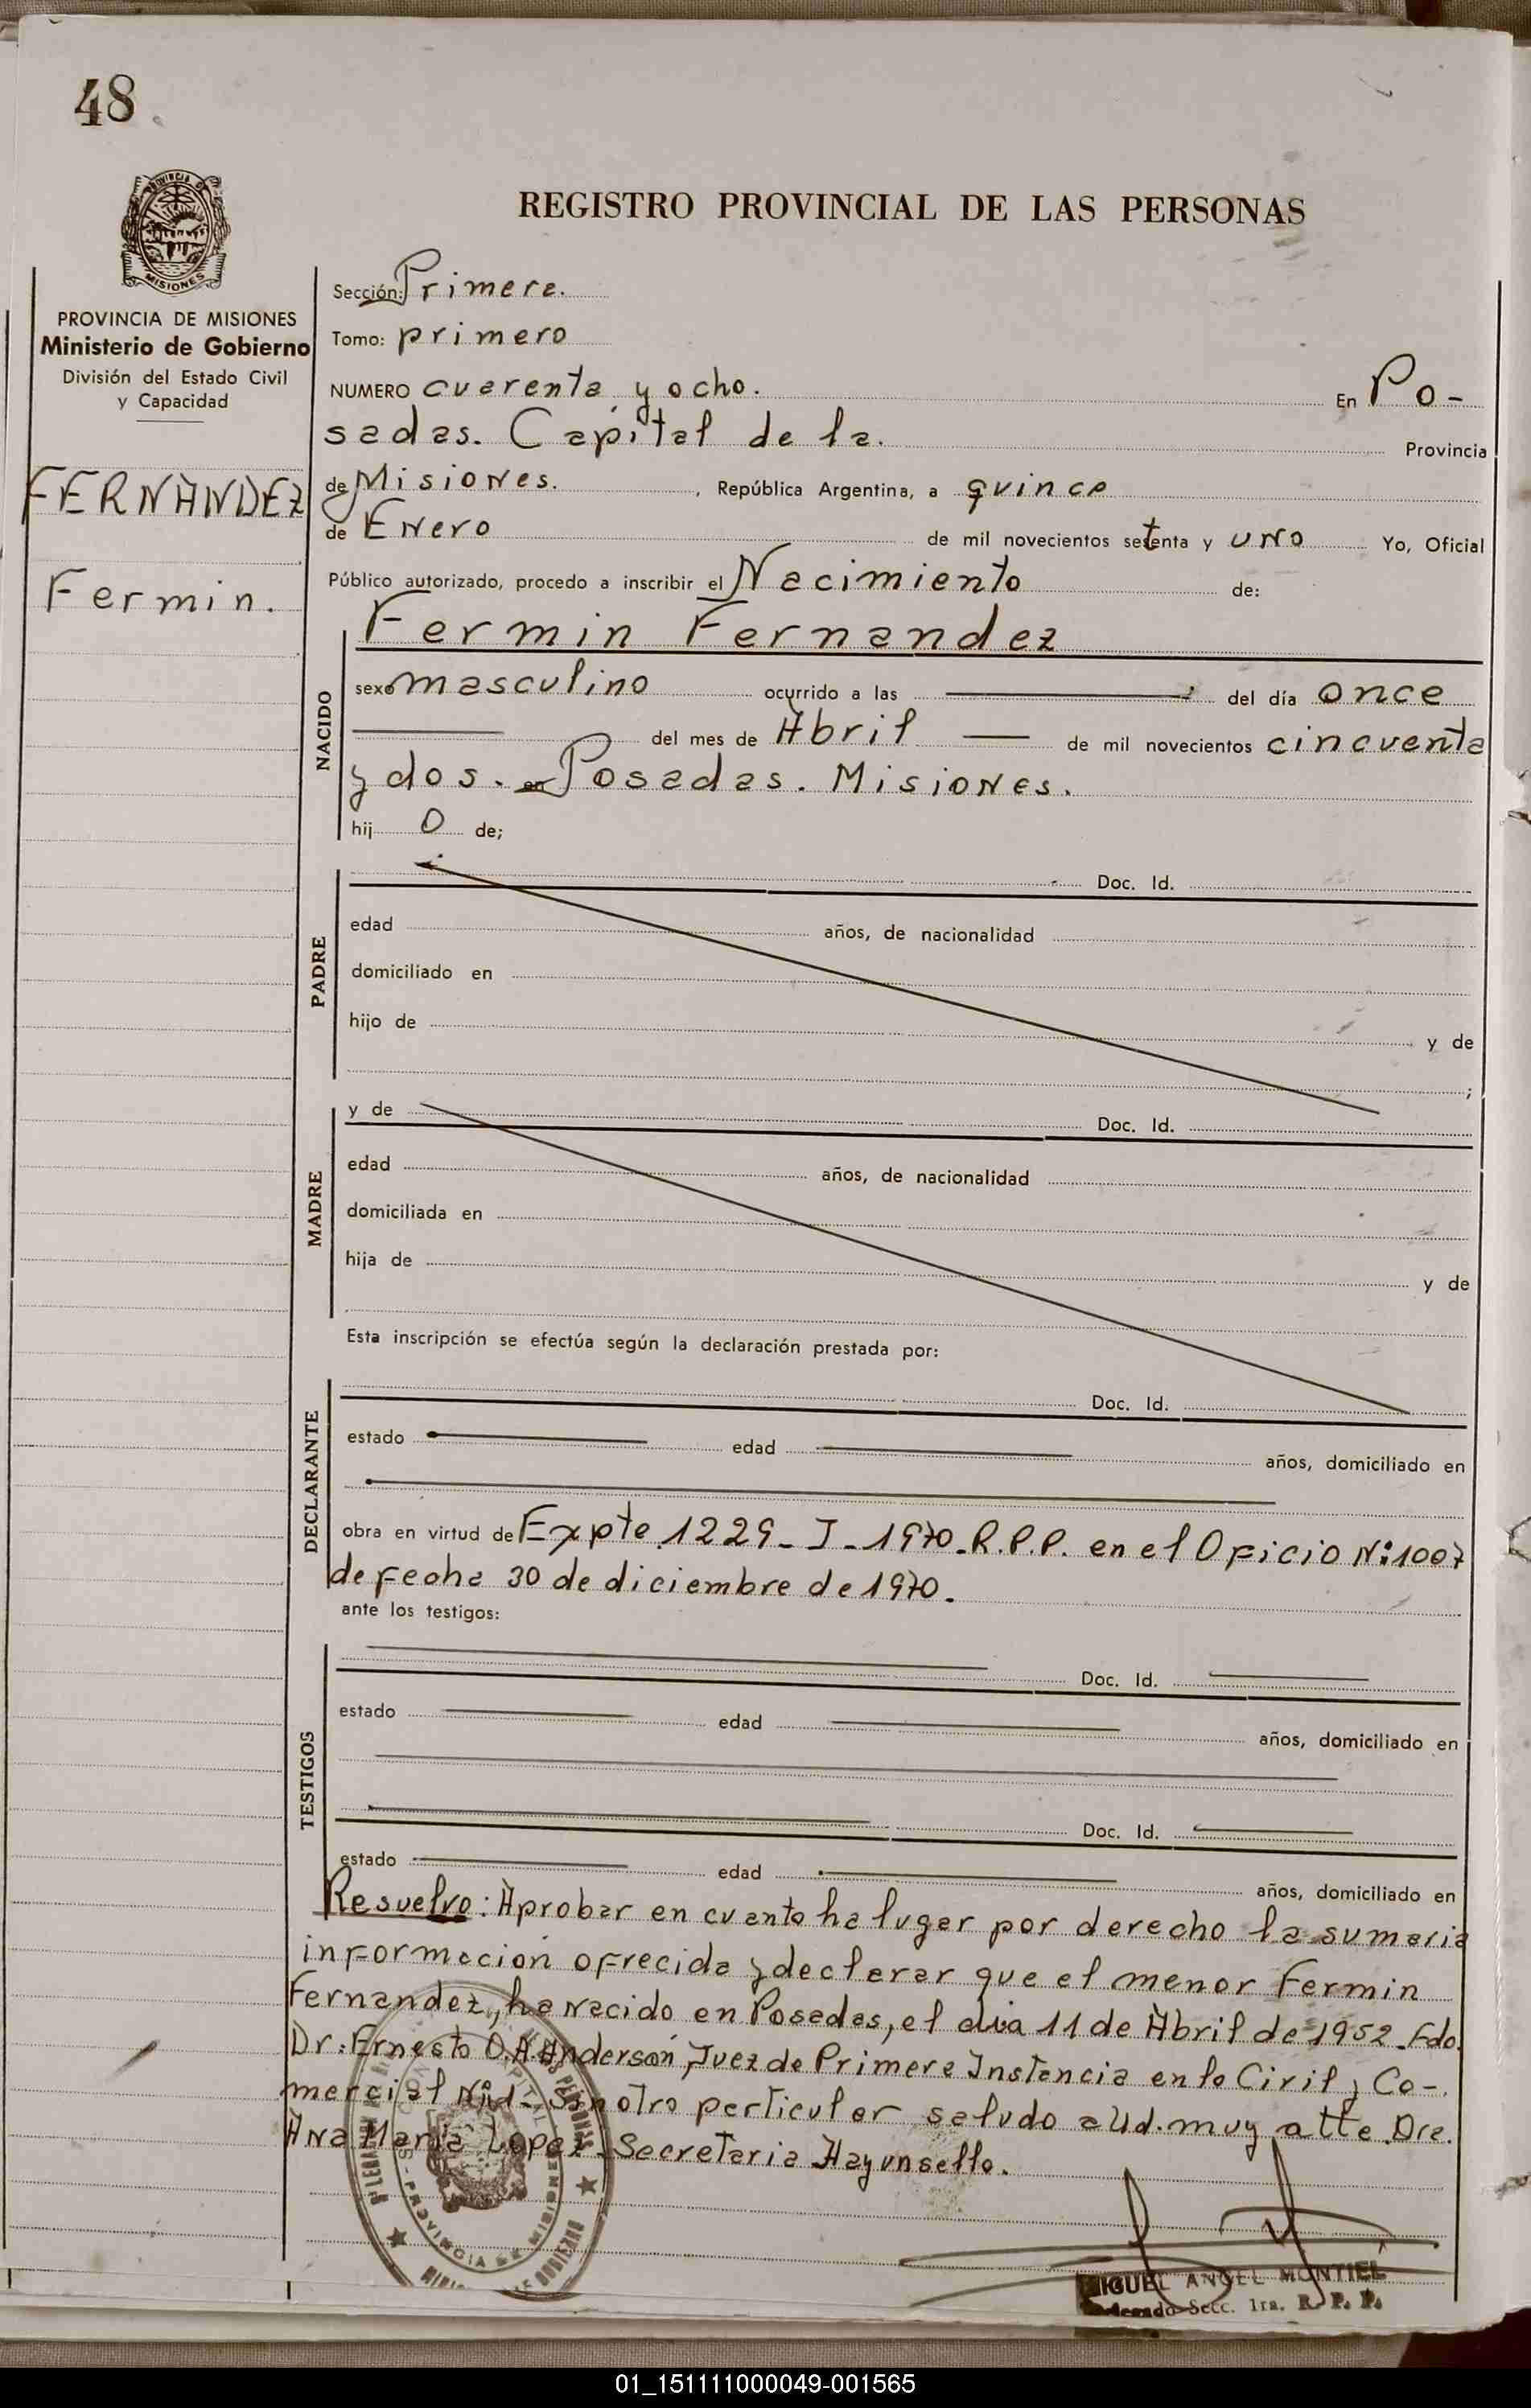 48
REGISTRO PROVINCIAL DE LAS PERSONAS
PROVINCIA DE
MISIONES
PROVINCIA DE MISIONES
Ministerio de Gobierno
División del Estado Civil
y Capacidad
FERNANDEZ
Fermin.
Sección: Primera.
Tomo: primero
NUMERO cuarenta y ocho. En Po-
sadas. Capital de la. Provincia
de Misiones. , República Argentina, a quince
de Enero de mil novecientos setenta y uno Yo, Oficial
Público autorizado, procedo a inscribir el Nacimiento de:
Fermin Fernandez
NACIDO
sexo masculino ocurrido a las del día once
del mes de Abril de mil novecientos cincuenta
y dos. en Posadas. Misiones.
hij o de;
PADRE
Doc. Id.
edad años, de nacionalidad
domiciliado en
hijo de y de
;
MADRE
y de Doc. Id.
edad años, de nacionalidad
domiciliada en
hija de y de
Esta inscripción se efectúa según la declaración prestada por:
DECLARANTE
Doc. Id.
estado edad años, domiciliado en
obra en virtud de Expte 1229_ J_ 1970_R.P.P. en el Oficio Nº 1007
de fecha 30 de diciembre de 1970.
ante los testigos:
TESTIGOS
Doc. Id.
estado edad años, domiciliado en
Doc. Id.
estado edad años, domiciliado en
Resuelvo: Aprobar en cuanto ha lugar por derecho la sumaria
información ofrecida y declarar que el menor Fermin
Fernandez, ha nacido en Posadas, el dia 11 de Abril de 1952_Fdo.
Dr: Ernesto O. Anderson, Juez de Primera Instancia en lo Civil y Co-
mercial Nº1_ Sin otro particular saludo a Ud. muy atte. Dra.
Ana Maria Lopez. Secretaria Hay un sello.
PROVINCIA DE MISIONES
MIGUEL ANGEL MONTIEL
Delegado Secc. 1ra. R. P. P.
01_151111000049-001565